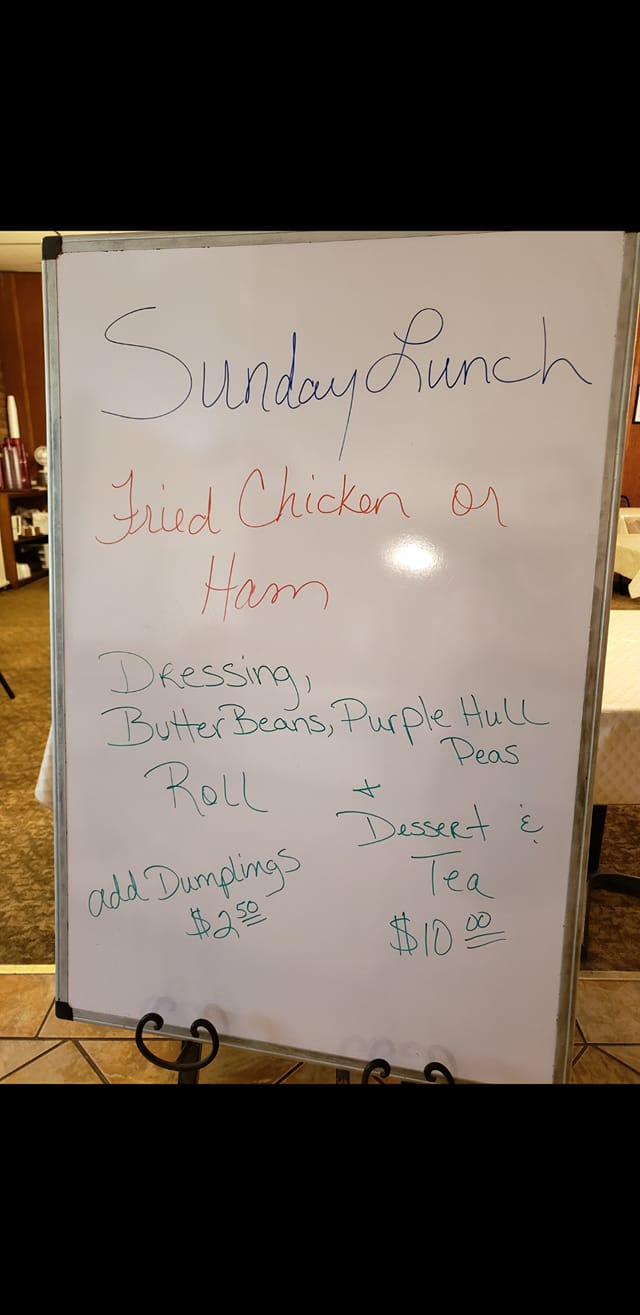 Sunday Lunch
Fried Chicken or
Ham
Dressing,
Butter Beans, Purple Hull
Peas
Roll +
Dessert &
add Dumplings
$2.50
Tea
$10.00